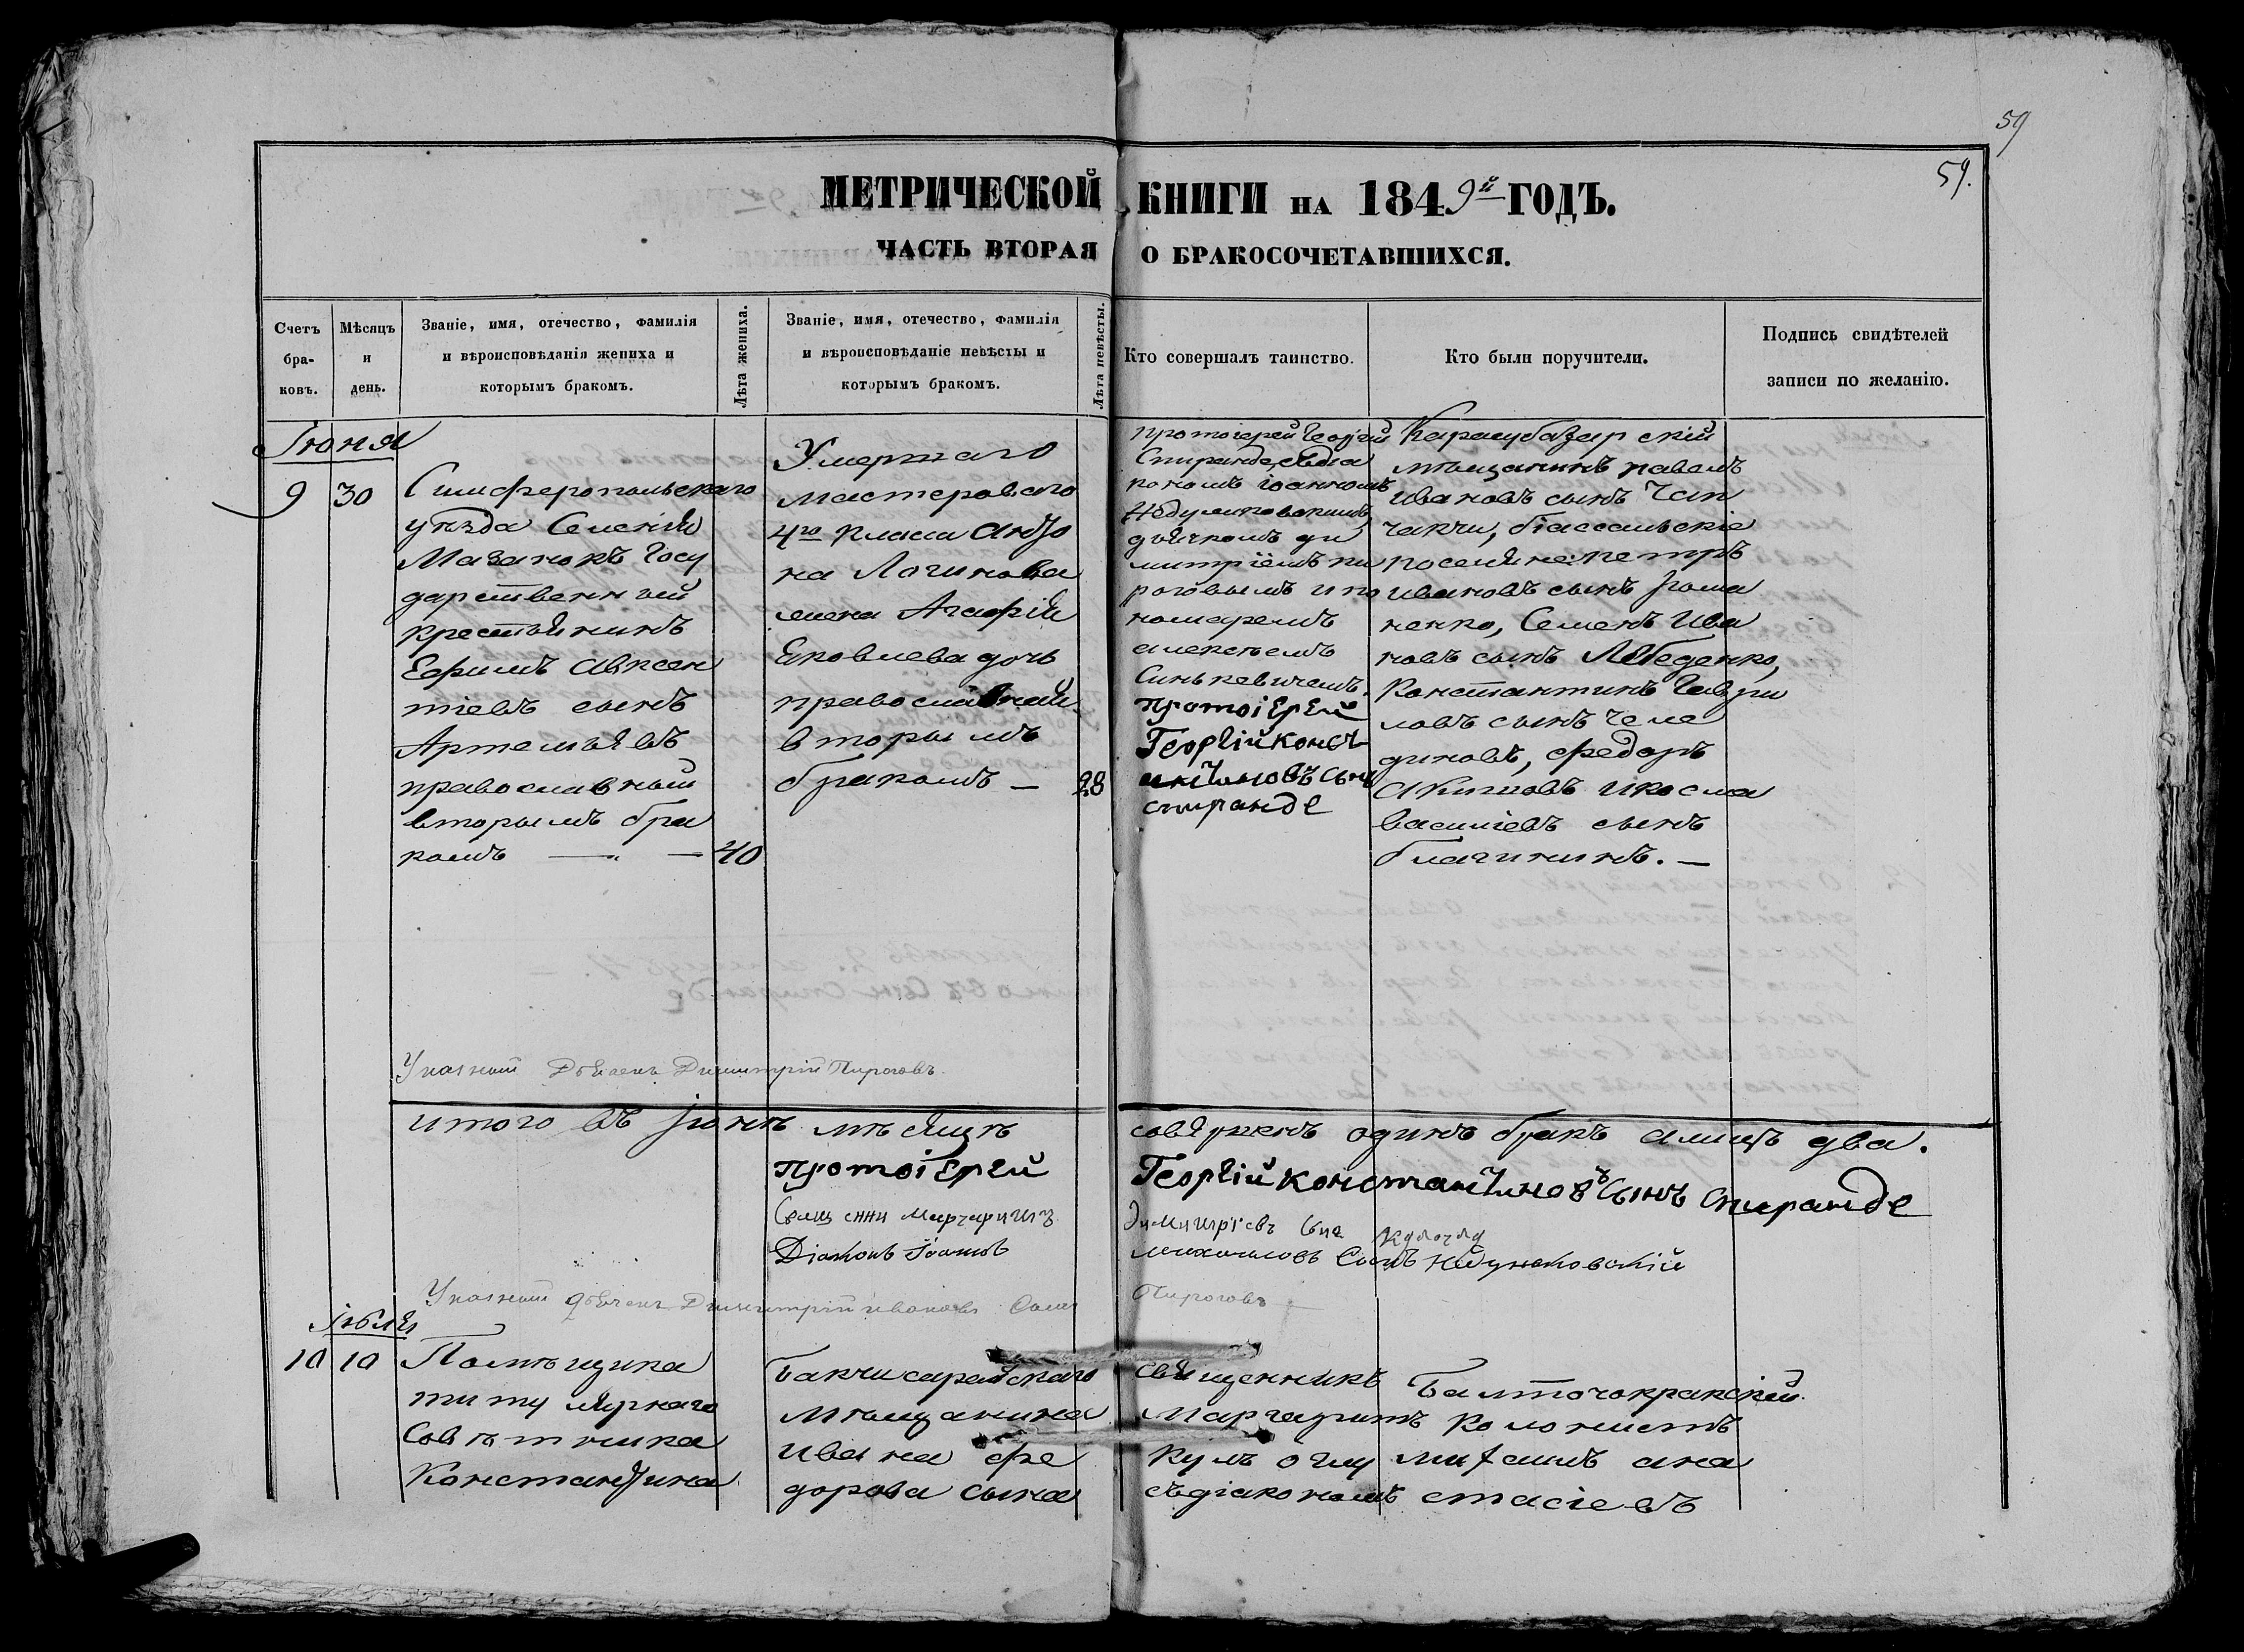 59
59.
МЕТРИЧЕСКОЙ КНИГИ НА 1849й ГОДЪ.
ЧАСТЬ ВТОРАЯ О БРАКОСОЧЕТАВШИХСЯ.
Счетъ бра-ковъ.
Мѣсяцъ и день.
Званіе, имя, отечество, фамилія
и вѣроисповѣданія жениха и
которымъ бракомъ.
Лѣта жениха.
Званіе, имя, отечество, фамилія
и вѣроисповѣданіе невѣсты и
которымъ бракомъ.
Лѣта невѣсты.
Кто совершалъ таинство.
Кто были поручители.
Подпись свидѣтелей
записи по желанію.
Іюня
9 30
Симферопольскаго
уѣзда Селенія
Мазанокъ Госу
дарственный
крестьянинъ
Ефимъ Авксен
тіевъ сынъ
Артемьевъ
православный
вторымъ бра
комъ — 40
Умершаго
мастероваго
4го класса Андро
на Логинова
жена Агафія
Яковлева дочь
православная
вторымъ
бракомъ — 28
протоіерей Георгій
Спиранде, съдіа
кономъ Іоанномъ
дьячкомъ ди
митріемъ пи
роговымъ и по
номаремъ
алексѣемъ
Синькевичемъ.
протоіерей
Георгій конст
антиновъ сынъ
спиранде
Карасубазарскій
мѣщанинъ павелъ
Ивановъ сынъ Чап
чакчи, біасальскіе
поселяне: петръ
ивановъ сынъ Рома
ненко, Семенъ Ива
новъ сынъ Лебеденко,
Константинъ Гаври
ловъ сынъ Челе
диновъ, Федоръ
Акимовъ и косма
василіевъ сынъ
благининъ. —
Указный Дьячекъ Димитрій Пироговъ.
итого въ іюнѣ мѣсяцѣ совершенъ одинъ бракъ а лицъ два.
протоіерей Георгій константиновъ сынъ спиранде
Свящ енни Маргаритъ Димитріевъ Сынъ
Діаконъ Іоаннъ михаиловъ Сынъ
Указный дьячекъ Димитрій ивановъ Сынъ Пироговъ
Іюля
10 10
Помѣщика
титулярнаго
Совѣтника
Константина
Бакчисарайскаго
мѣщанина
Ивана Фе
дорова сына
Священникъ
Маргаритъ
съдіакономъ
Балточокракскій
колонистъ
анастасіевъ